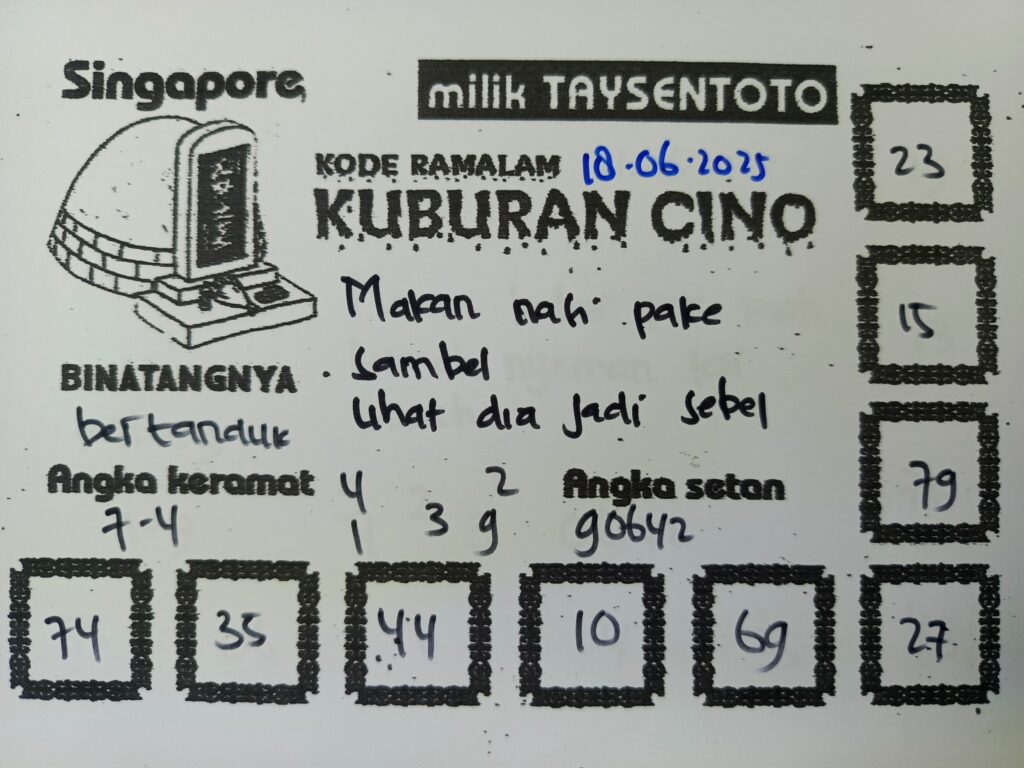 Singapore
milik TAYSENTOTO
KODE RAMALAM 18.06.2025
KUBURAN CINO
Makan nasi pake
sambel
lihat dia jadi sebel
BINATANGNYA
bertanduk
Angka keramat
7-4
4 2
1 3 9
Angka setan
90642
23
15
79
74 35 44 10 69 27